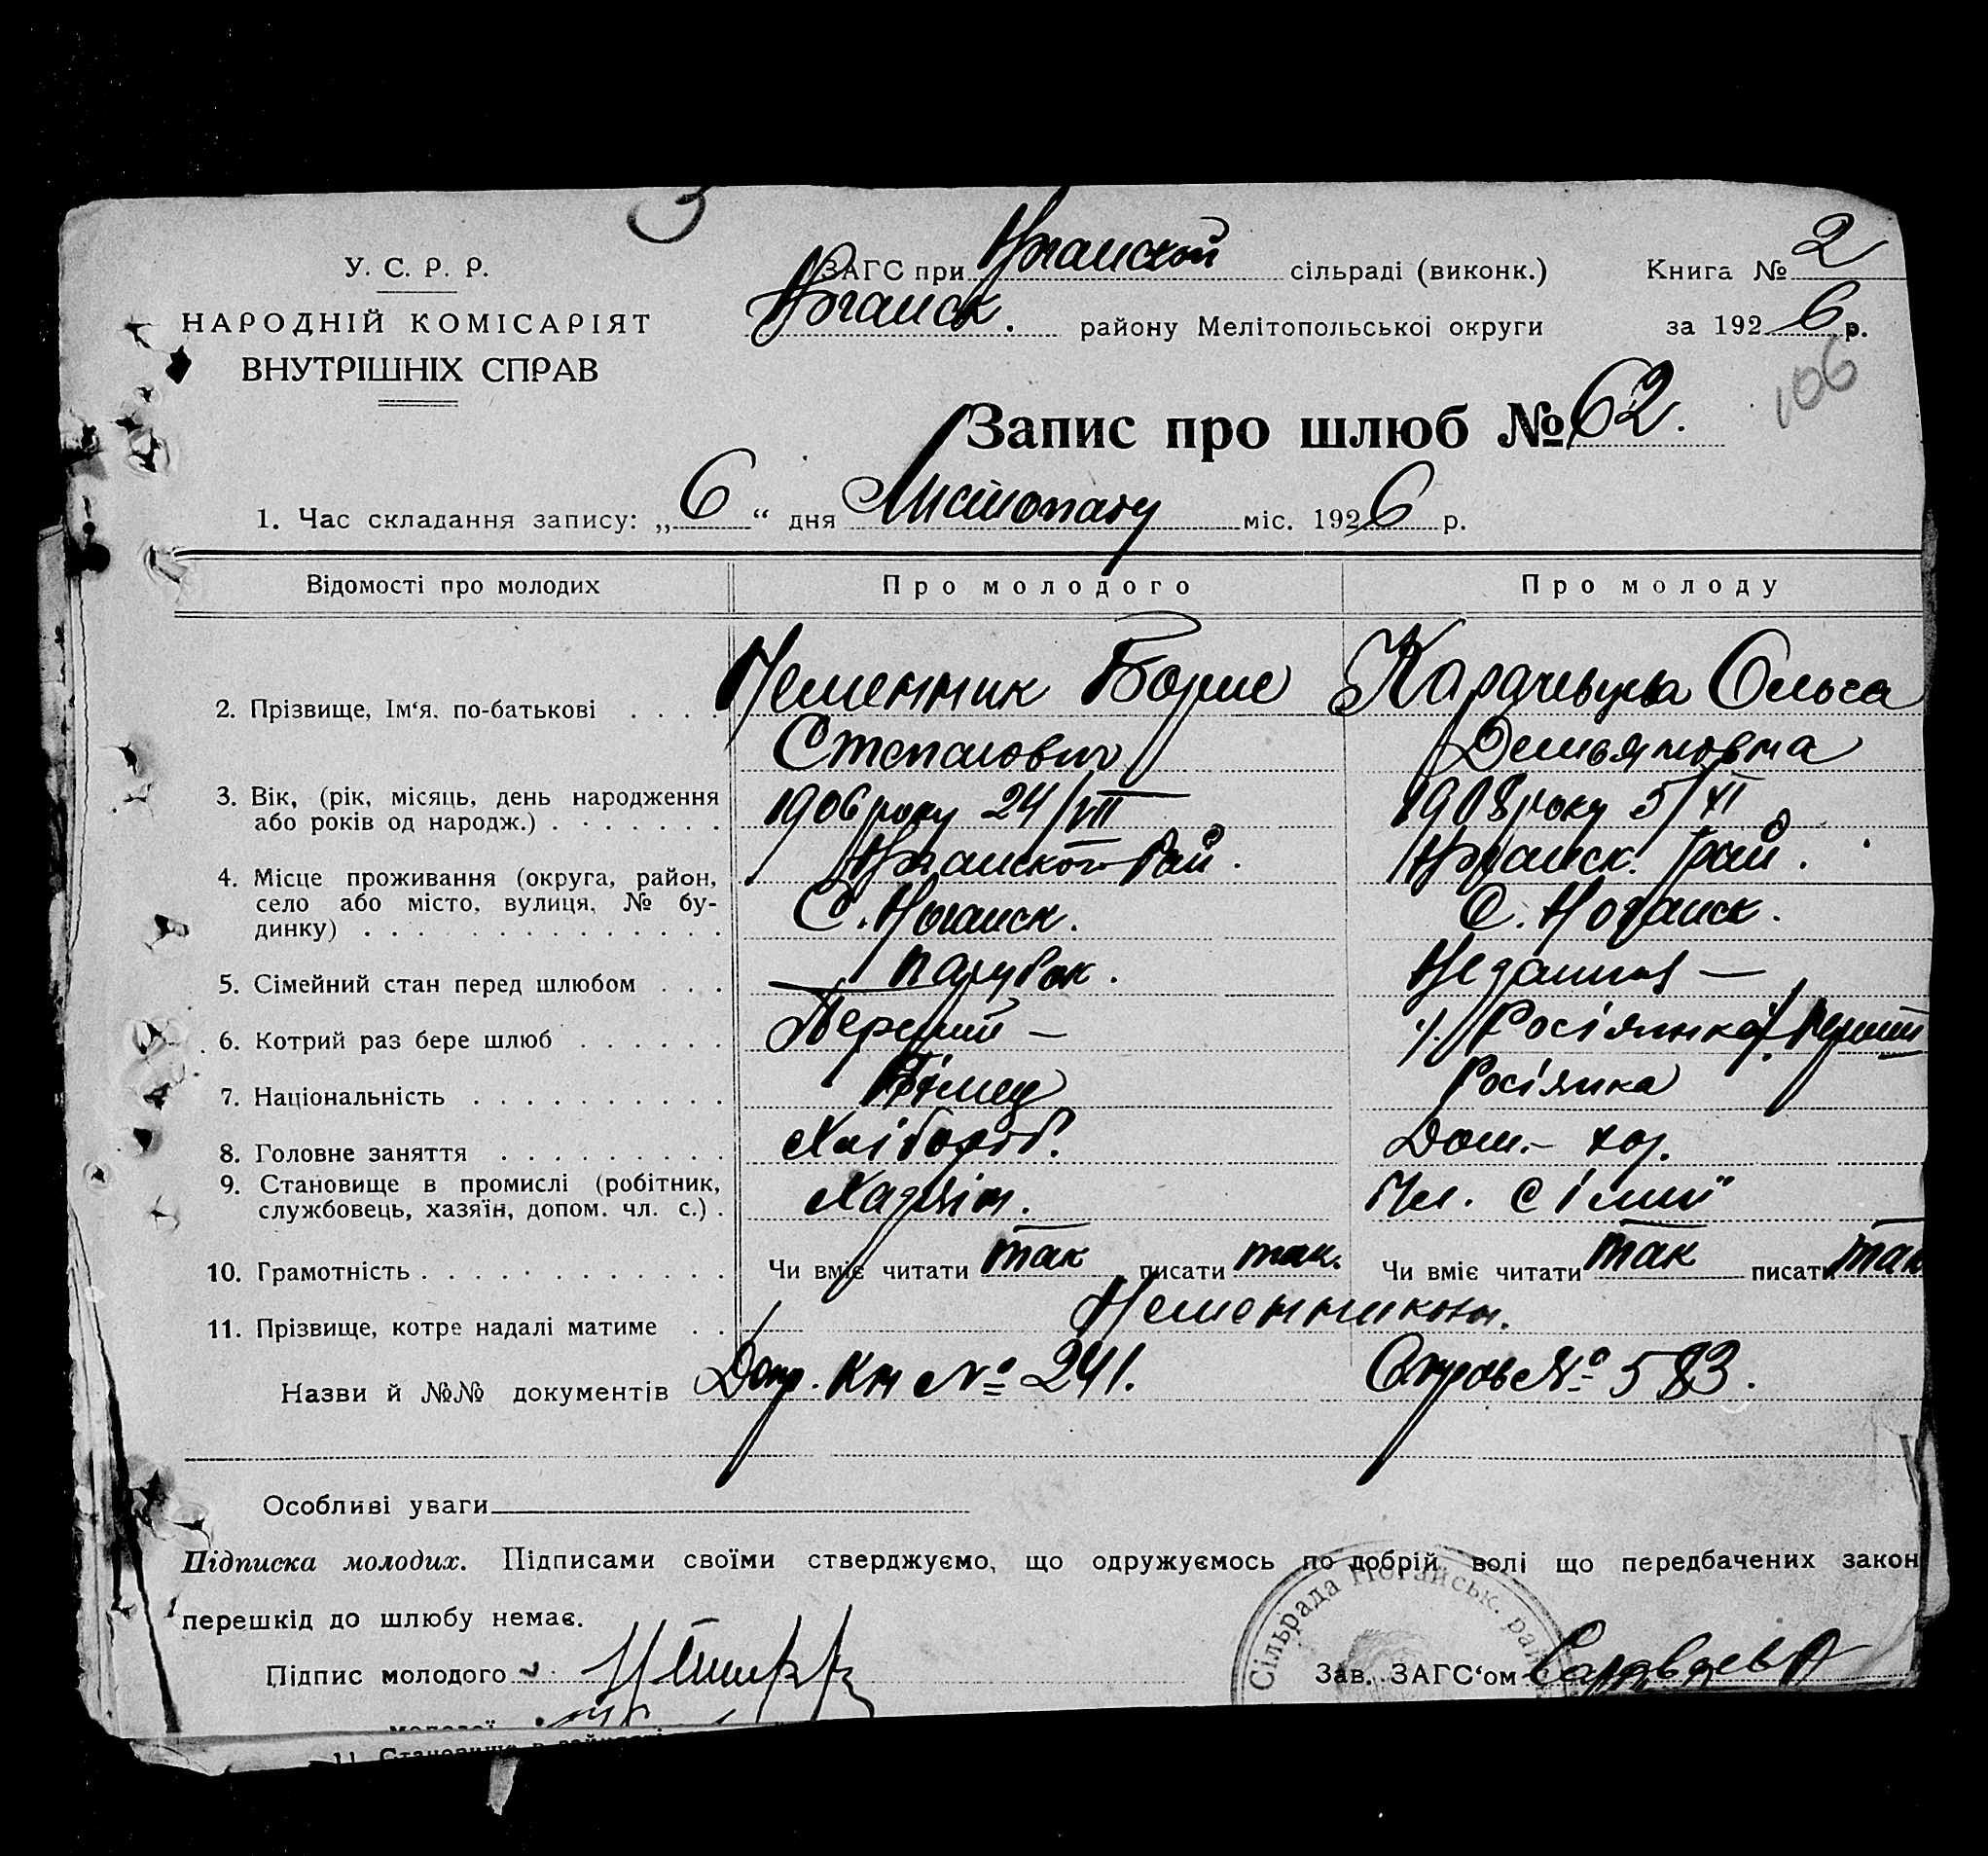 У. С. Р. Р.
НАРОДНІЙ КОМІСАРІЯТ
ВНУТРІШНІХ СПРАВ
ЗАГС при Ногаиской сільраді (виконк.) Книга № 2
Ногаиск. району Мелітопольскоі округи за 1926 р.
106
Запис про шлюб № 62.
1. Час складання запису: „6“ дня Листопаду міс. 1926 р.
Відомості про молодих Про молодого Про молоду
2. Прізвище, Ім‘я. по-батькові . . . . Неменник Борис Карачевцева Ольга
Степанович Демьяновна
3. Вік, (рік, місяць, день народження 1906 року 24/VII 1908 року 5/XI
або років од народж.) . . . . . . .
4. Місце проживання (округа, район, Ногаиского Рай. Ногаиск. рай.
село або місто, вулиця, № бу- С. Ногаиск. С. Ногаиск.
динку) . . . . . . . . . . . . . . .
5. Сімейний стан перед шлюбом . . . парубок.
6. Котрий раз бере шлюб . . . . . . Перший — Росіянка Перший
7. Національність . . . . . . . . . . Росіянка
8. Головне заняття . . . . . . . . . Хлібороб. Дом.- хоз.
9. Становище в промислі (робітник, Хазяін. Чл. сімии
службовець, хазяїн, допом. чл. с.) .
10. Грамотність . . . . . . . . . . . . Чи вміє читати так писати так. Чи вміє читати так писати так
11. Прізвище, котре надалі матиме . . Неменникови.
Назви й №№ документів Допр. Кн № 241. № 583.
Особливі уваги
Підписка молодих. Підписами своїми стверджуємо, що одружуємось по добрій волі що передбачених закон
перешкід до шлюбу немає.
Сільрада Ногайськ. рай
Підпис молодого Зав. ЗАГС‘ом
молодої
11. Становище в